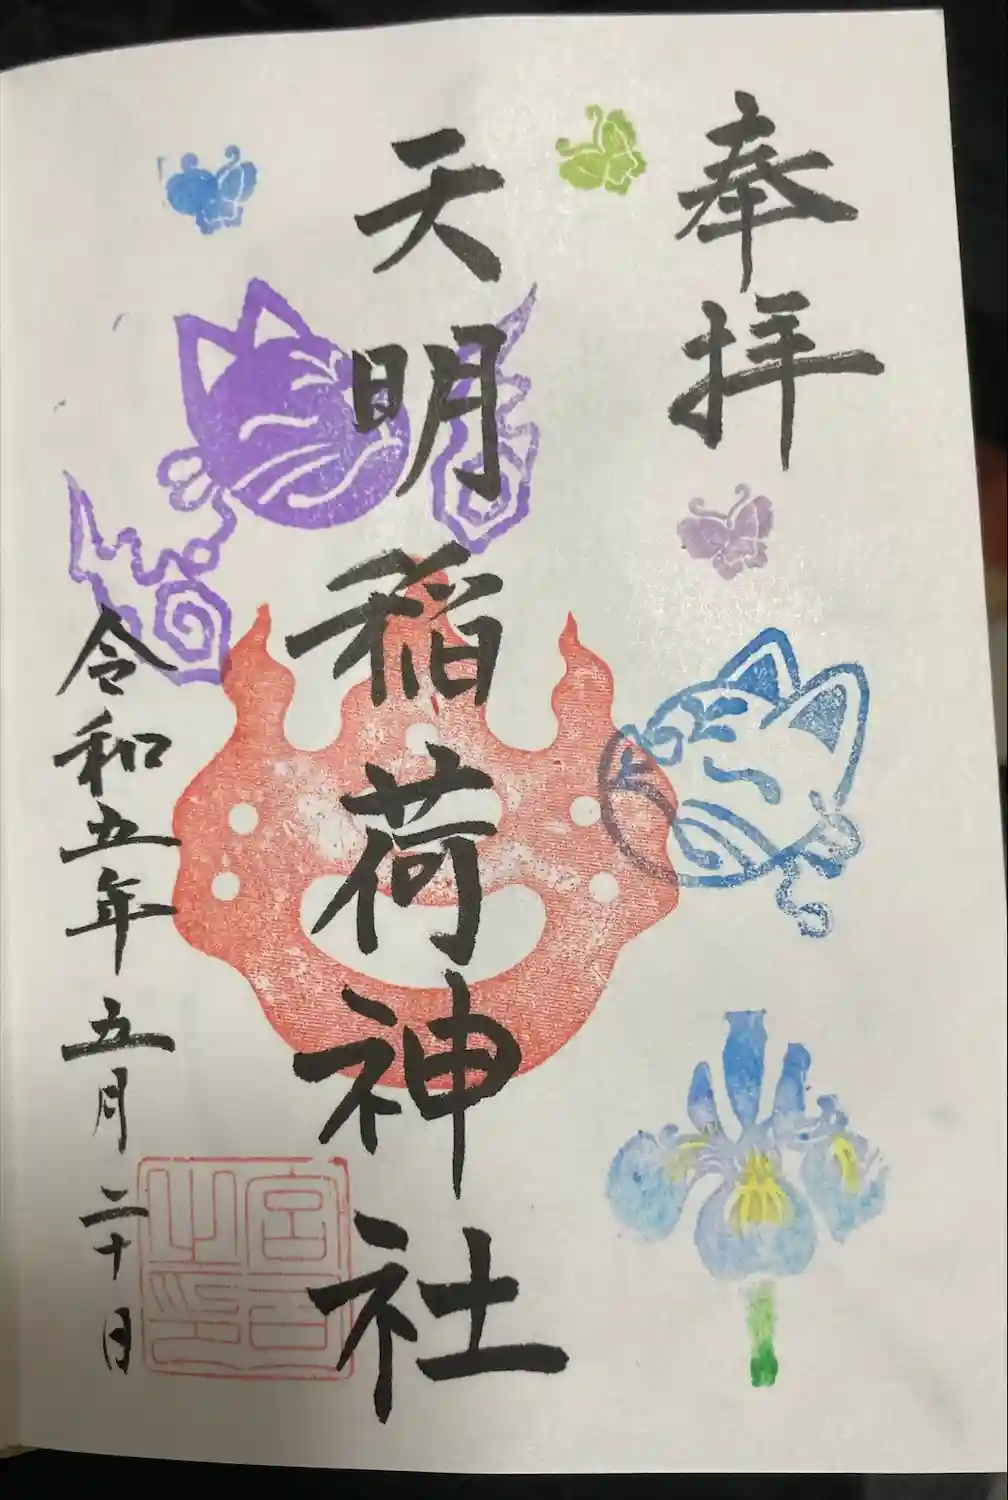 奉拝
天明稲荷神社
令和五年五月二十日
宮司之印